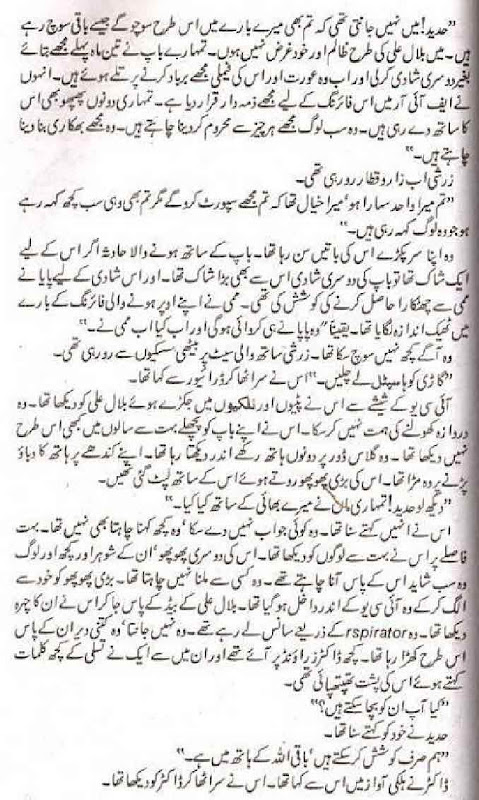 ”حدید! میں نہیں جانتی تھی کہ تم بھی میرے بارے میں اس طرح سوچو گے جیسے باقی سوچ رہے
ہیں۔ میں بلال علی کی طرح ظالم اور خود غرض نہیں ہوں۔ تمہارے باپ نے تین ماہ پہلے مجھے بتائے
بغیر دوسری شادی کر لی اور اب وہ عورت اور اس کی فیملی مجھے برباد کرنے پر تلے ہوئے ہیں۔ انہوں
نے ایف آئی آر میں اس فائرنگ کے لیے مجھے ذمہ دار قرار دیا ہے۔ تمہاری دونوں پھوپھو بھی اس
کا ساتھ دے رہی ہیں۔ وہ سب لوگ مجھے ہر چیز سے محروم کر دینا چاہتے ہیں۔ وہ مجھے بھکاری بنا دینا
چاہتے ہیں۔“
زرشی اب زار و قطار رو رہی تھی۔
”تم میرا واحد سہارا ہو‘ میرا خیال تھا کہ تم مجھے سپورٹ کرو گے مگر تم بھی وہی سب کچھ کہہ رہے
ہو جو وہ لوگ کہہ رہی ہیں۔“
وہ اپنا سر پکڑے اس کی باتیں سن رہا تھا۔ باپ کے ساتھ ہونے والا حادثہ اگر اس کے لیے
ایک شاک تھا تو باپ کی دوسری شادی اس سے بھی بڑا شاک تھا۔ اور اس شادی کے لیے پاپا نے
ممی سے چھٹکارا حاصل کرنے کی کوشش کی تھی۔ ممی نے اپنے اوپر ہونے والی فائرنگ کے بارے
میں ٹھیک اندازہ لگایا تھا۔ یقیناً ”وہ پاپا نے ہی کروائی ہو گی اور اب کیا اب ممی نے۔“
وہ آگے کچھ نہیں سوچ سکا تھا۔ زرشی ساتھ والی سیٹ پر بیٹھی سسکیوں سے رو رہی تھی۔
”گاڑی کو ہاسپٹل لے چلیں۔“ اس نے سر اٹھا کر ڈرائیور سے کہا تھا۔
آئی سی یو کے شیشے سے اس نے پٹیوں اور نلکیوں میں جکڑے ہوئے بلال علی کو دیکھا تھا۔ وہ
دروازہ کھولنے کی ہمت نہیں کر سکا۔ اس نے اپنے باپ کو پچھلے بہت سے سالوں میں بھی اس طرح
نہیں دیکھا تھا۔ وہ گلاس ڈور پر دونوں ہاتھ رکھے اندر دیکھتا رہا تھا۔ اپنے کندھے پر ہاتھ کا دباؤ
پڑنے پر وہ مڑا تھا۔ اس کی بڑی پھوپھو روتے ہوئے اس کے ساتھ لپٹ گئی تھیں۔
”دیکھ لو حدید! تمہاری ماں نے میرے بھائی کے ساتھ کیا کیا۔“
اس نے انہیں کہتے سنا تھا۔ وہ کوئی جواب نہیں دے سکا‘ وہ کچھ کہنا چاہتا بھی نہیں تھا۔ بہت
فاصلے پر اس نے بہت سے لوگوں کو دیکھا تھا۔ اس کی دوسری پھوپھو‘ ان کے شوہر اور کچھ اور لوگ
وہ سب شاید اس کے پاس آنا چاہتے تھے۔ وہ کسی سے ملنا نہیں چاہتا تھا۔ بڑی پھوپھو کو خود سے
الگ کر کے وہ آئی سی یو کے اندر داخل ہو گیا تھا۔ بلال علی کے بیڈ کے پاس جا کر اس نے ان کا چہرہ
دیکھا تھا۔ وہ rspirator کے ذریعے سانس لے رہے تھے۔ وہ نہیں جانتا‘ وہ کتنی دیر ان کے پاس
اس طرح کھڑا رہا تھا۔ کچھ ڈاکٹرز راؤنڈ پر آئے تھے اور ان میں سے ایک نے تسلی کے کچھ کلمات
کہتے ہوئے اس کی پشت تھپتھپائی تھی۔
”کیا آپ ان کو بچا سکتے ہیں؟“
حدید نے خود کو کہتے سنا تھا۔
”ہم صرف کوشش کر سکتے ہیں‘ باقی اللہ کے ہاتھ میں ہے۔“
ڈاکٹر نے ہلکی آواز میں اس سے کہا تھا۔ اس نے سر اٹھا کر ڈاکٹر کو دیکھا تھا۔